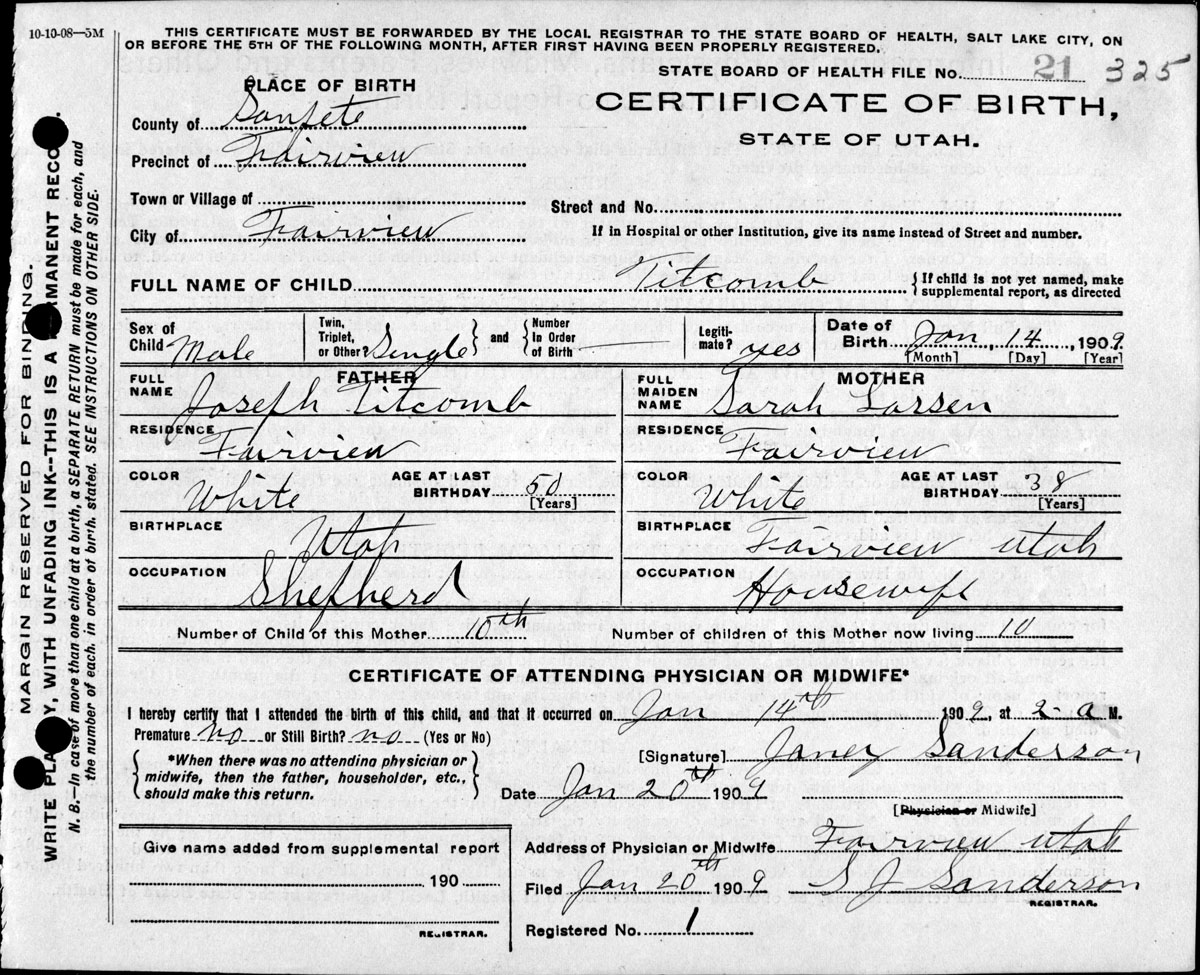 10-10-08—5M
THIS CERTIFICATE MUST BE FORWARDED BY THE LOCAL REGISTRAR TO THE STATE BOARD OF HEALTH, SALT LAKE CITY, ON
OR BEFORE THE 5TH OF THE FOLLOWING MONTH, AFTER FIRST HAVING BEEN PROPERLY REGISTERED.
STATE BOARD OF HEALTH FILE NO. 21 325
CERTIFICATE OF BIRTH,
STATE OF UTAH.
PLACE OF BIRTH
County of Sanpete
Precinct of Fairview
Town or Village of
City of Fairview
Street and No.
If in Hospital or other Institution, give its name instead of Street and number.
FULL NAME OF CHILD Titcomb {If child is not yet named, make
supplemental report, as directed
Sex of Child Male
Twin, Triplet, or Other? Single } and { Number In Order of Birth
Legiti- mate? yes
Date of Birth Jan, 14, 1909.
[Month] [Day] [Year]
FATHER
FULL NAME Joseph Titcomb
RESIDENCE Fairview
COLOR White AGE AT LAST BIRTHDAY 50 [Years]
BIRTHPLACE Utah
OCCUPATION Shepherd
MOTHER
FULL MAIDEN NAME Sarah Larsen
RESIDENCE Fairview
COLOR White AGE AT LAST BIRTHDAY 38 [Years]
BIRTHPLACE Fairview Utah
OCCUPATION Housewife
Number of Child of this Mother 10th Number of children of this Mother now living 10
CERTIFICATE OF ATTENDING PHYSICIAN OR MIDWIFE*
I hereby certify that I attended the birth of this child, and that it occurred on Jan 14th 1909, at 2-a M.
Premature no or Still Birth? no (Yes or No)
{ *When there was no attending physician or
midwife, then the father, householder, etc.,
should make this return. }
[Signature] Janey Sanderson
Date Jan 20th 1909
[Physician or Midwife]
Address of Physician or Midwife Fairview Utah
Filed Jan 20th 1909 S J Sanderson
REGISTRAR.
Registered No. 1
Give name added from supplemental report
190
REGISTRAR.
MARGIN RESERVED FOR BINDING.
WRITE PLA Y, WITH UNFADING INK--THIS IS A MANENT RECO .
N. B.—In case of more than one child at a birth, a SEPARATE RETURN must be made for each, and
the number of each, in order of birth, stated. SEE INSTRUCTIONS ON OTHER SIDE.